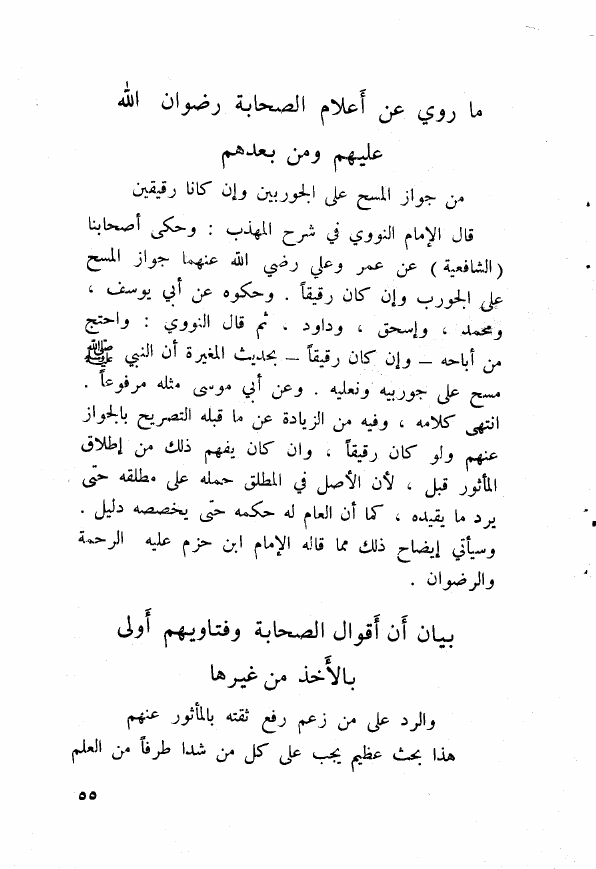 ما روي عن أعلام الصحابة رضوان الله
عليهم ومن بعدهم
من جواز المسح على الجوربين وإن كانا رقيقين
قال الإمام النووي في شرح المهذب : وحكى أصحابنا
(الشافعية) عن عمر وعلي رضي الله عنهما جواز المسح
على الجورب وإن كان رقيقاً . وحكوه عن أبي يوسف ،
ومحمد ، وإسحق ، وداود . ثم قال النووي : واحتج
من أباحه – وإن كان رقيقاً – بحديث المغيرة أن النبي ﷺ
مسح على جوربيه ونعليه . وعن أبي موسى مثله مرفوعاً .
انتهى كلامه ، وفيه من الزيادة عن ما قبله التصريح بالجواز
عنهم ولو كان رقيقاً ، وان كان يفهم ذلك من إطلاق
المأثور قبل ، لأن الأصل في المطلق حمله على مطلقه حتى
يرد ما يقيده ، كما أن العام له حكمه حتى يخصصه دليل .
وسيأتي إيضاح ذلك مما قاله الإمام ابن حزم عليه الرحمة
والرضوان .
بيان أن أقوال الصحابة وفتاويهم أولى
بالأخذ من غيرها
والرد على من زعم رفع ثقته بالمأثور عنهم
هذا بحث عظيم يجب على كل من شدا طرفاً من العلم
٥٥